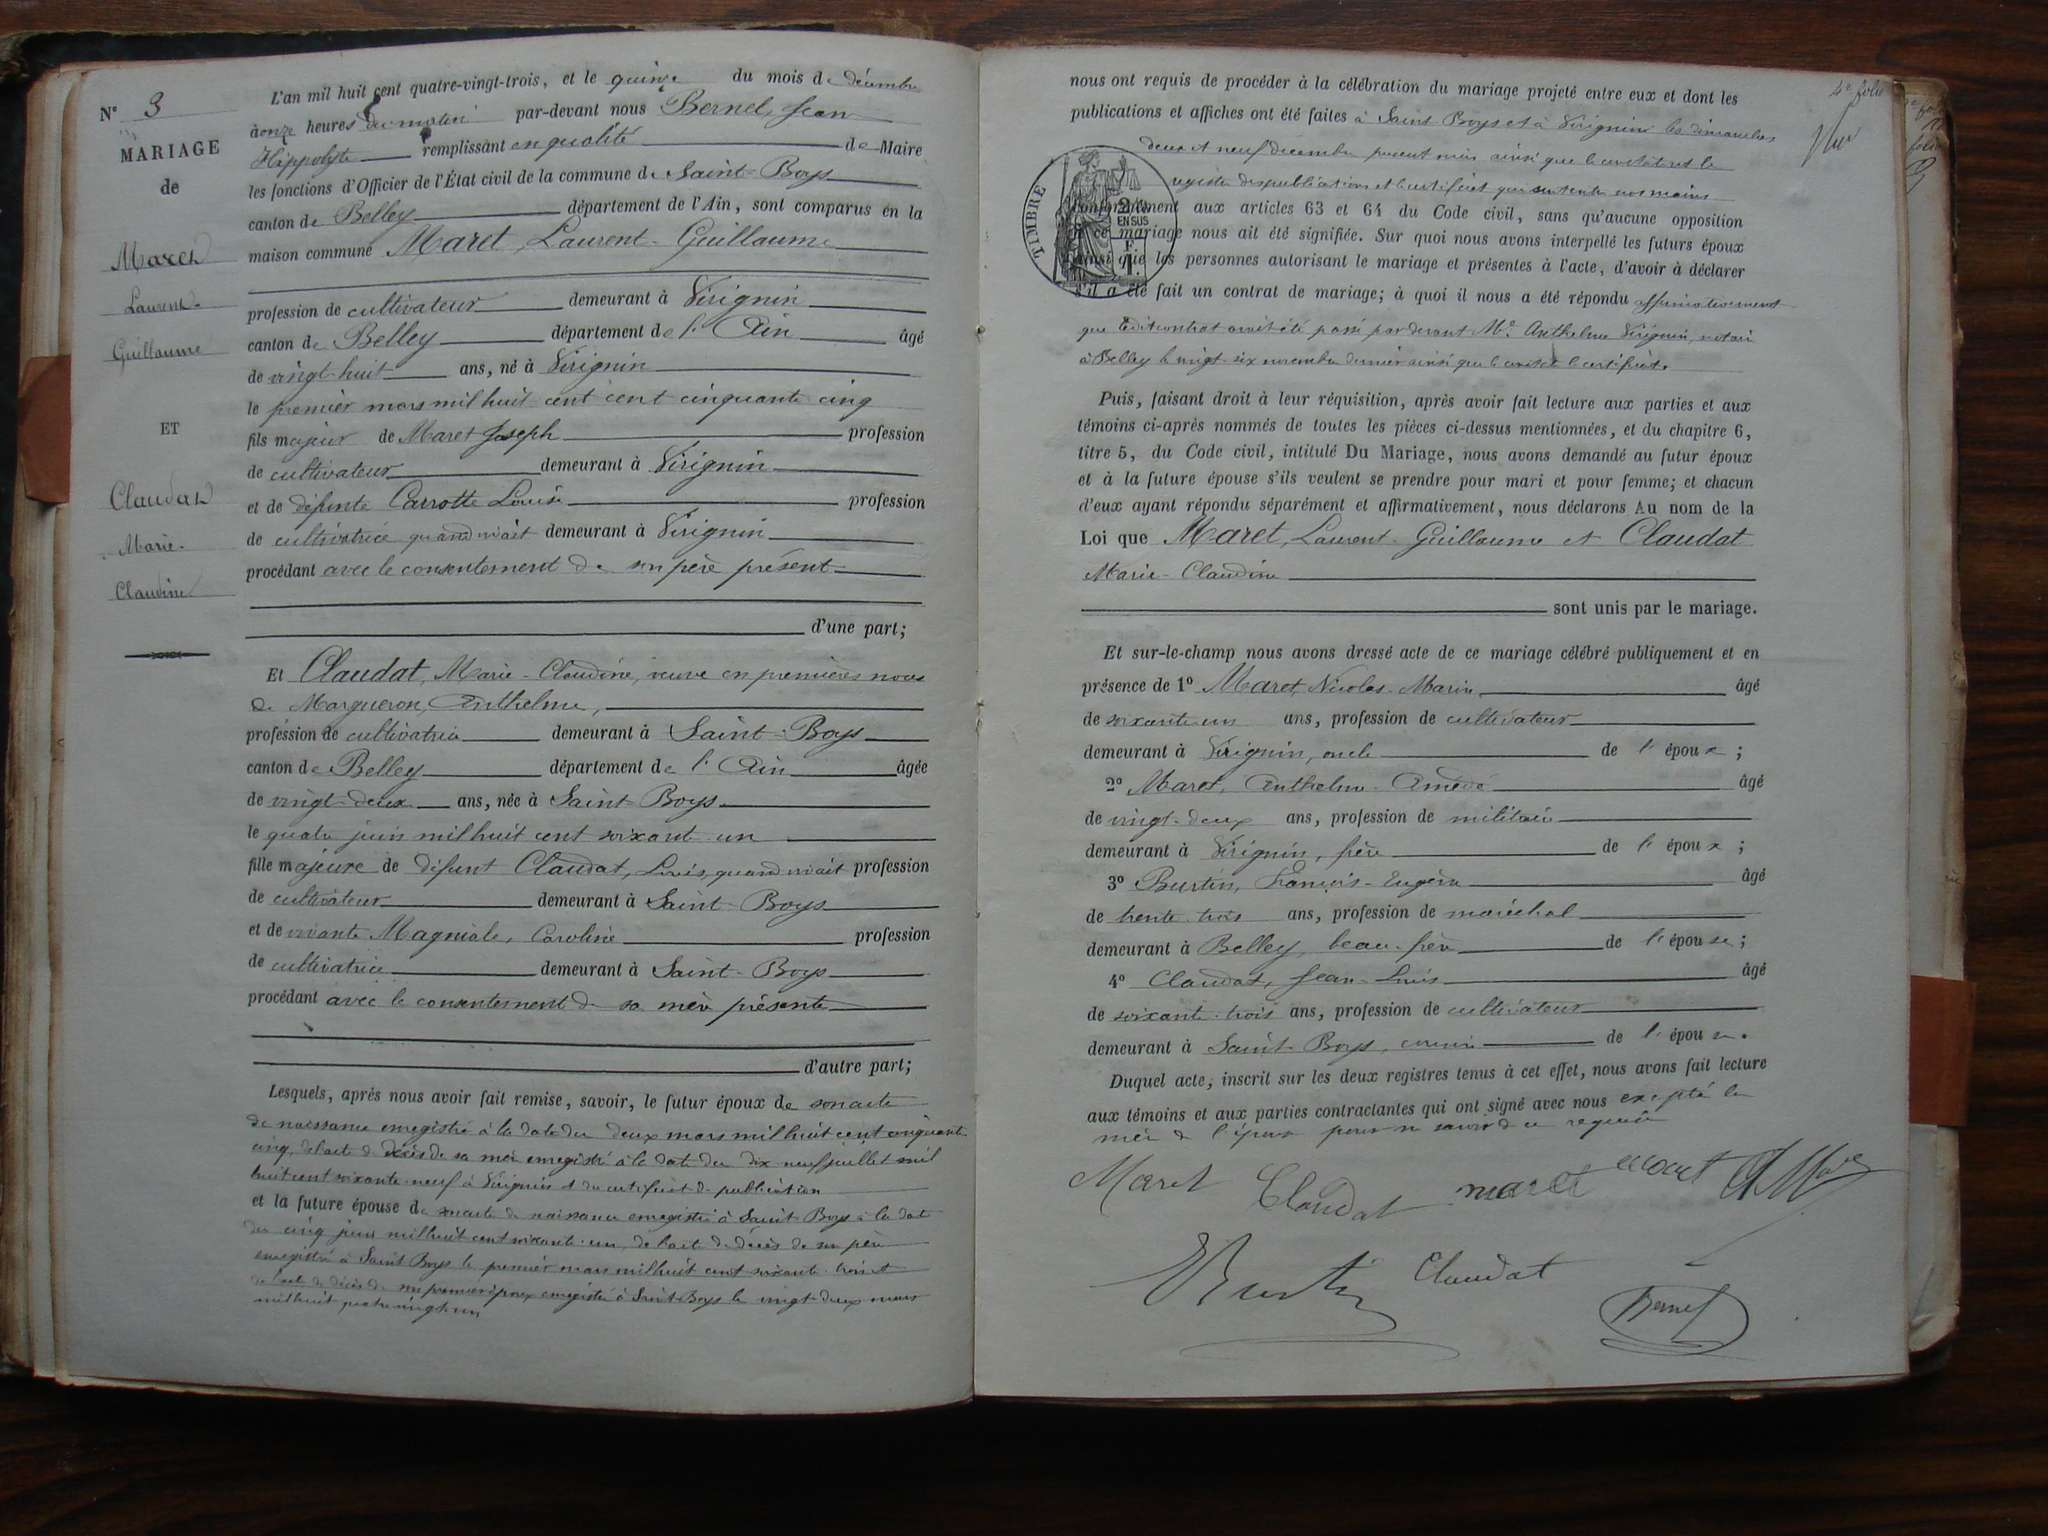 N° 3
MARIAGE
de
Maret
Laurent-
Guillaume
ET
Claudat
Marie-
Claudine
L'an mil huit cent quatre-vingt-trois, et le quinze du mois de décembre
à onze heures du matin par-devant nous Bernel, Jean
Hippolyte remplissant en qualité de Maire
les fonctions d'Officier de l'État civil de la commune de Saint-Boys
canton de Belley département de l'Ain, sont comparus en la
maison commune Maret, Laurent-Guillaume
profession de cultivateur demeurant à Virignin
canton de Belley département de l'Ain âgé
de vingt-huit ans, né à Virignin
le premier mars mil huit cent cent cinquante cinq
fils majeur de Maret Joseph profession
de cultivateur demeurant à Virignin
et de défunte Carrotte Louise profession
de cultivatrice quand vivait demeurant à Virignin
procédant avec le consentement de son père présent
d'une part;
Et Claudat, Marie-Claudine, veuve en premières noces
de Margueron, Anthelme,
profession de cultivatrice demeurant à Saint-Boys
canton de Belley département de l'Ain âgée
de vingt-deux ans, née à Saint-Boys
le quatre juin mil huit cent soixante-un
fille majeure de défunt Claudat, Louis, quand vivait profession
de cultivateur demeurant à Saint-Boys
et de vivante Magniale, Caroline profession
de cultivatrice demeurant à Saint-Boys
procédant avec le consentement de sa mère présente
d'autre part;
Lesquels, après nous avoir fait remise, savoir, le futur époux de son acte
de naissance enregistré à la date du deux mars mil huit cent cinquante
cinq, de l'acte de décès de sa mère enregistré à la date du dix neuf juillet mil
huit cent soixante-neuf à Virignin et du certificat de publication
et la future épouse de son acte de naissance enregistré à Saint-Boys à la date
du cinq juin mil huit cent soixante-un, de l'acte de décès de son père
enregistré à Saint Boys le premier mars mil huit cent soixante-trois et
de l'acte de décès de son premier époux enregistré à Saint-Boys le vingt-deux mars
mil huit quatre vingt un
4e folio
nous ont requis de procéder à la célébration du mariage projeté entre eux et dont les
publications et affiches ont été faites à Saint Boys et à Virignin les dimanches
deux et neuf décembre présent mois ainsi que le constatent le
registre des publications et le certificat qui sont entre nos mains
conformément aux articles 63 et 64 du Code civil, sans qu'aucune opposition
à ce mariage nous ait été signifiée. Sur quoi nous avons interpellé les futurs époux
ainsi que les personnes autorisant le mariage et présentes à l'acte, d'avoir à déclarer
s'il a été fait un contrat de mariage; à quoi il nous a été répondu affirmativement
que ledit contrat avait été passé par devant Me Anthelme Virignin, notaire
à Belley le vingt-six novembre dernier ainsi que le constate le certificat.
TIMBRE
2/10
EN SUS
F.
1.
Puis, faisant droit à leur réquisition, après avoir fait lecture aux parties et aux
témoins ci-après nommés de toutes les pièces ci-dessus mentionnées, et du chapitre 6,
titre 5, du Code civil, intitulé Du Mariage, nous avons demandé au futur époux
et à la future épouse s'ils veulent se prendre pour mari et pour femme; et chacun
d'eux ayant répondu séparément et affirmativement, nous déclarons Au nom de la
Loi que Maret, Laurent-Guillaume et Claudat
Marie-Claudine
sont unis par le mariage.
Et sur-le-champ nous avons dressé acte de ce mariage célébré publiquement et en
présence de 1° Maret, Nicolas-Marin âgé
de soixante-un ans, profession de cultivateur
demeurant à Virignin, oncle de l'époux;
2° Maret, Anthelme-Amédé âgé
de vingt-deux ans, profession de militaire
demeurant à Virignin, frère de l'époux;
3° Burtin, François-Eugène âgé
de trente-trois ans, profession de maréchal
demeurant à Belley, beau-frère de l'épouse;
4° Claudat, Jean-Louis âgé
de soixante-trois ans, profession de cultivateur
demeurant à Saint-Boys, cousin de l'épouse.
Duquel acte, inscrit sur les deux registres tenus à cet effet, nous avons fait lecture
aux témoins et aux parties contractantes qui ont signé avec nous excepté la
mère de l'épouse pour ne savoir de ce requise
Maret Claudat maret maret
Burtin Claudat Bernel